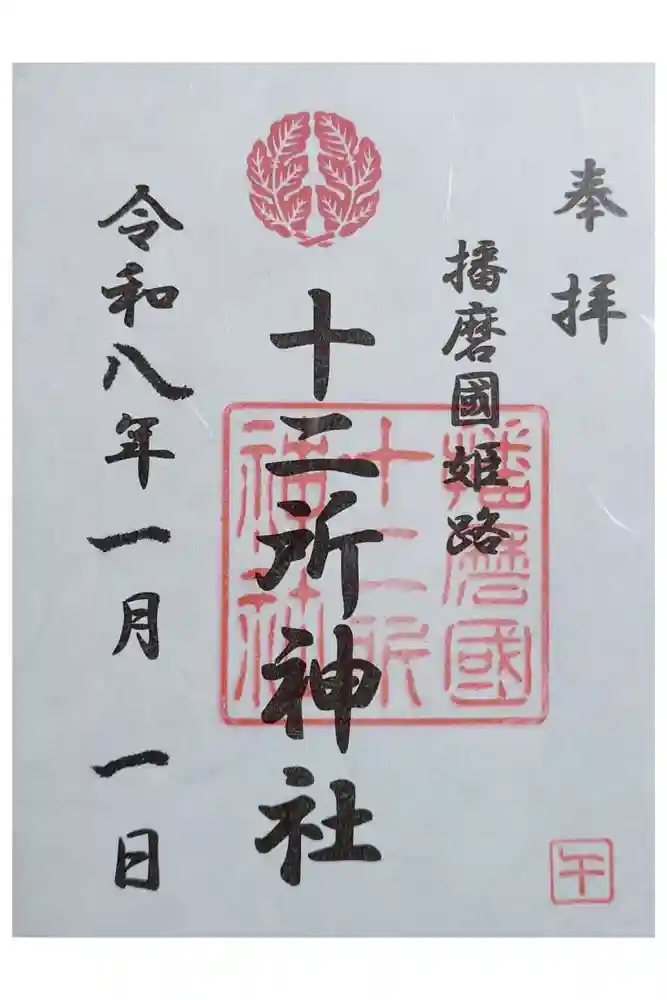 奉拝
播磨國姫路
播磨國
十二所
神社
十二所神社
令和八年一月一日
午